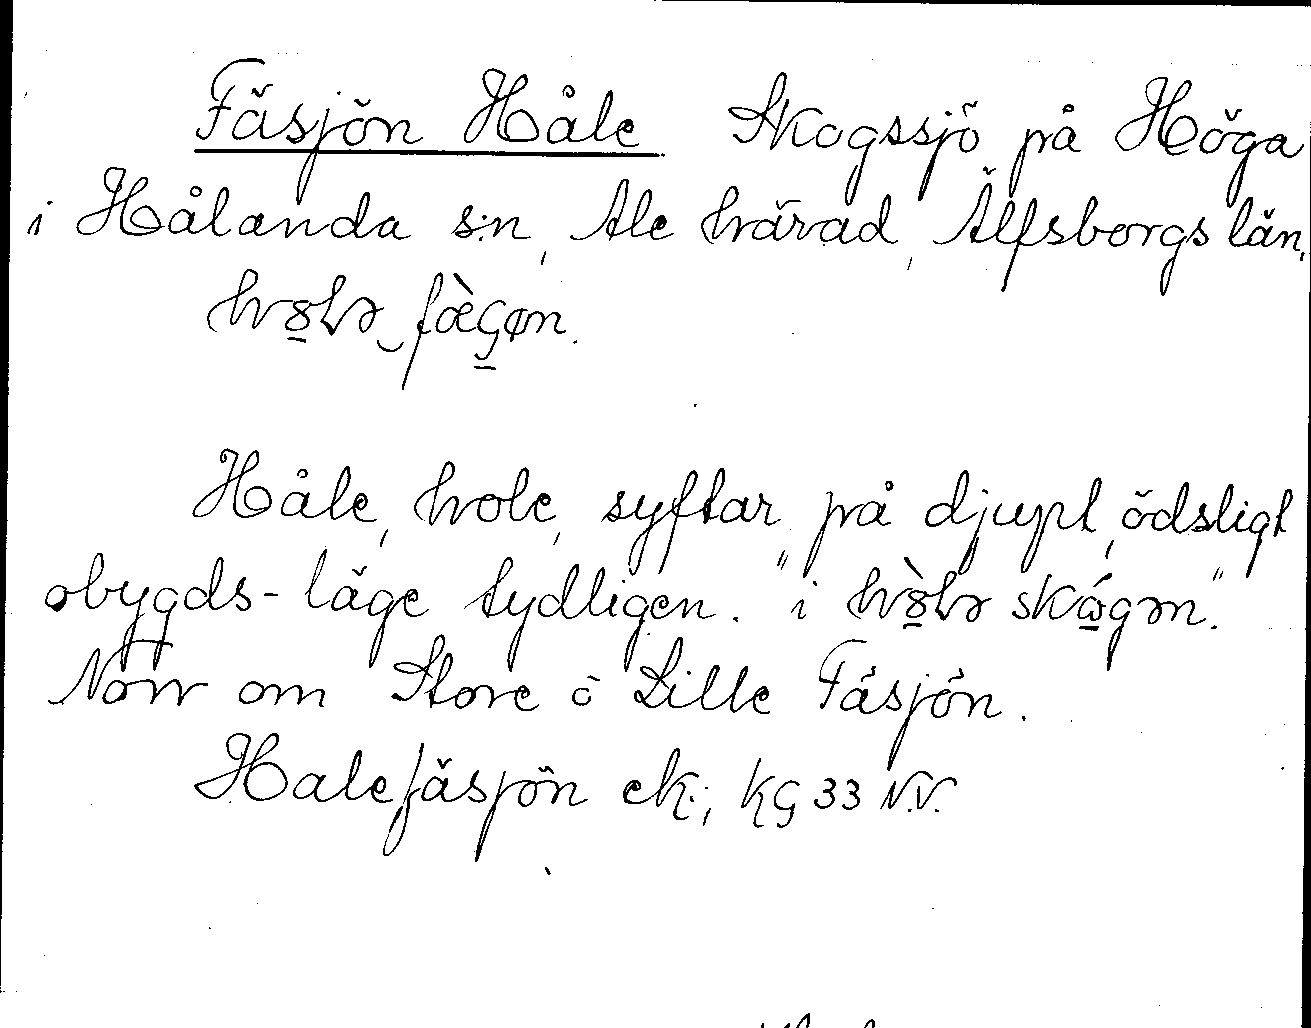 Fäsjön Håle Skogssjö på Höga
i Hålanda s:n, Ale härad, Älfsborgs län,
Håle, hole, syftar på djupt, ödsligt
obygds-läge tydligen. "i skógən."
Norr om Store o Lille Fäsjön.
Halefäsjön ek:, KG 33 N.V.